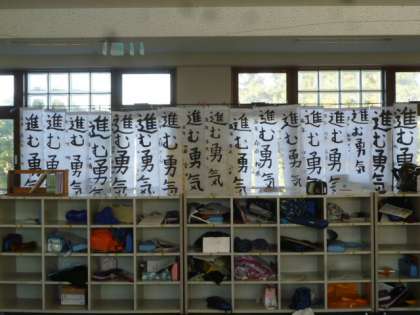 進む勇気
進む勇気
進む勇気
進む勇気
進む勇気
進む勇気
進む勇気
進む勇気
進む勇気
進む勇気
進む勇気
進む勇気
進む勇気
進む勇気
進む勇気
進む勇気
進む勇気